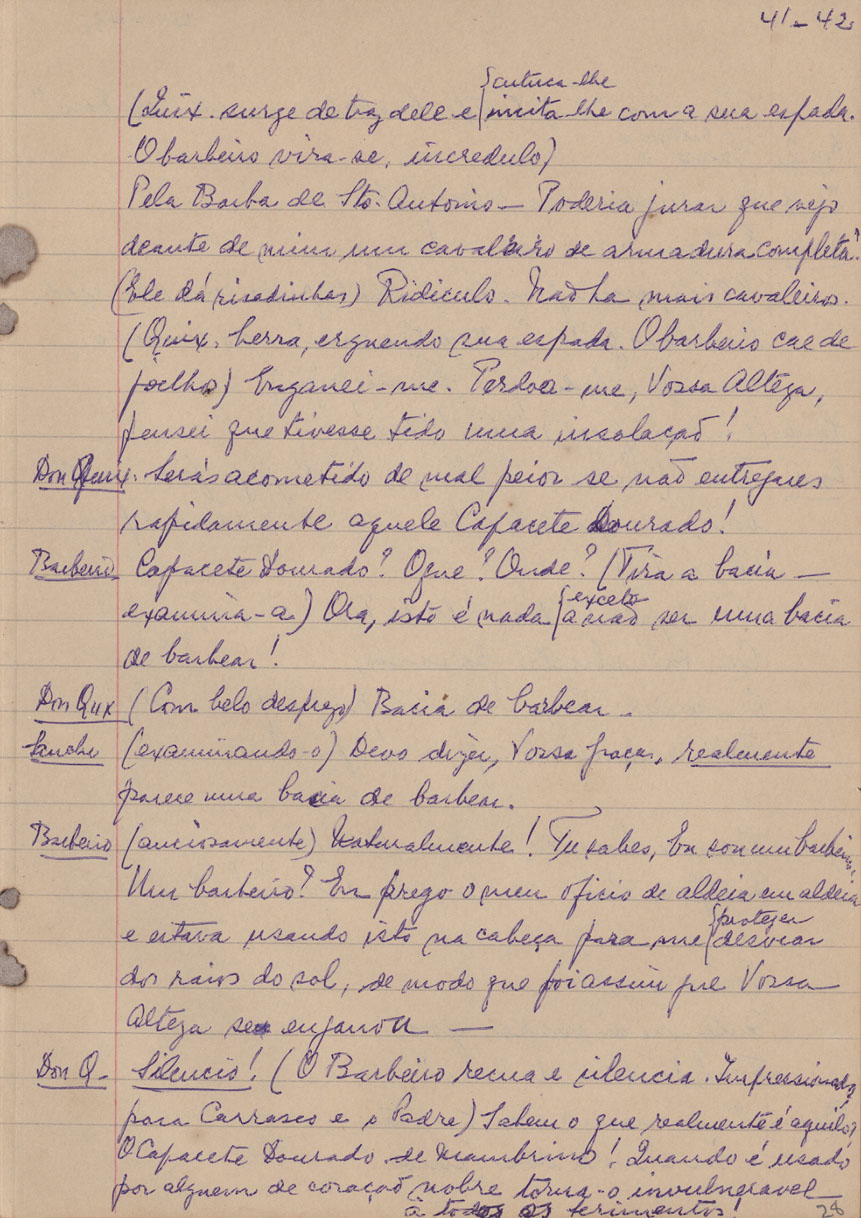 41-42
{cutuca-lhe
(Quix. surge de traz dele e {incita-lhe com a sua espada.
O barbeiro vira-se, incredulo)
Pela Barba de Sto. Antonio — Poderia jurar que vejo
deante de mim um cavaleiro de armadura completa?
(Ele dá risadinhas) Ridiculo. Não ha mais cavaleiros.
(Quix. berra, erguendo sua espada. O barbeiro cae de
joelhos) Enganei-me. Perdoa-me, Vossa Alteza,
pensei que tivesse tido uma insolação!
Don Quix. Serás acometido de mal peior se não entregares
rapidamente aquele Capacete Dourado!
Barbeiro Capacete Dourado? Oque? Onde? (Tira a bacia —
{exceto
examina-a) Ora, isto é nada {a não ser uma bacia
de barbear!
Don Qux (Com belo desprezo) Bacia de barbear —
Sancho (examinando-o) Devo dizer, Vossa Graça, realmente
parece uma bacia de barbear.
Barbeiro (anciosamente) Naturalmente! Tu sabes, Eu sou um barbeiro.
Um barbeiro? Eu prego o meu oficio de aldeia em aldeia
{proteger
e estava usando isto na cabeça para me {desviar
dos raios do sol, de modo que foi assim que Vossa
Alteza se enganou —
Don Q- Silencio! (O Barbeiro recua e silencia. Impressionado,
para Carrasco e o Padre) Sabem o que realmente é aquilo?
O Capacete Dourado de Mambrino! Quando é usado
por alguem de coração nobre torna-o invulneravel
à todos os ferimentos!
28